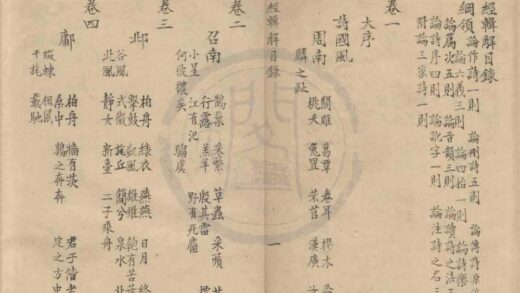 經輯解目錄
綱領 論作詩一則 論刪詩五則 論傳詩源流
論六義三則 論四始一則 論詩樂
論篇次五則 論音韻三則 論讀詩之法
論詩序四則 論訛字一則 論注詩之名
附論三家詩一則
卷一
大序
詩國風
周南 關雎 葛覃 卷耳 樛木
桃夭 兔罝 芣苢 漢廣
麟之趾
經輯解目錄 一
卷二
召南 鵲巢 采蘩 草蟲 采蘋
行露 羔羊 殷其雷
小星 江有汜 野有死麕
何彼襛矣 騶虞
卷三
邶 柏舟 綠衣 燕燕 日月 終
擊鼓 凱風 雄雉 匏有苦
谷風 式微 旄丘 簡兮 泉水 北
北風 靜女 新臺 二子乘舟
卷四
鄘 柏舟 牆有茨 君子偕老
桑中 鶉之奔奔 定之方中
蝃蝀 相鼠
干旄 載馳